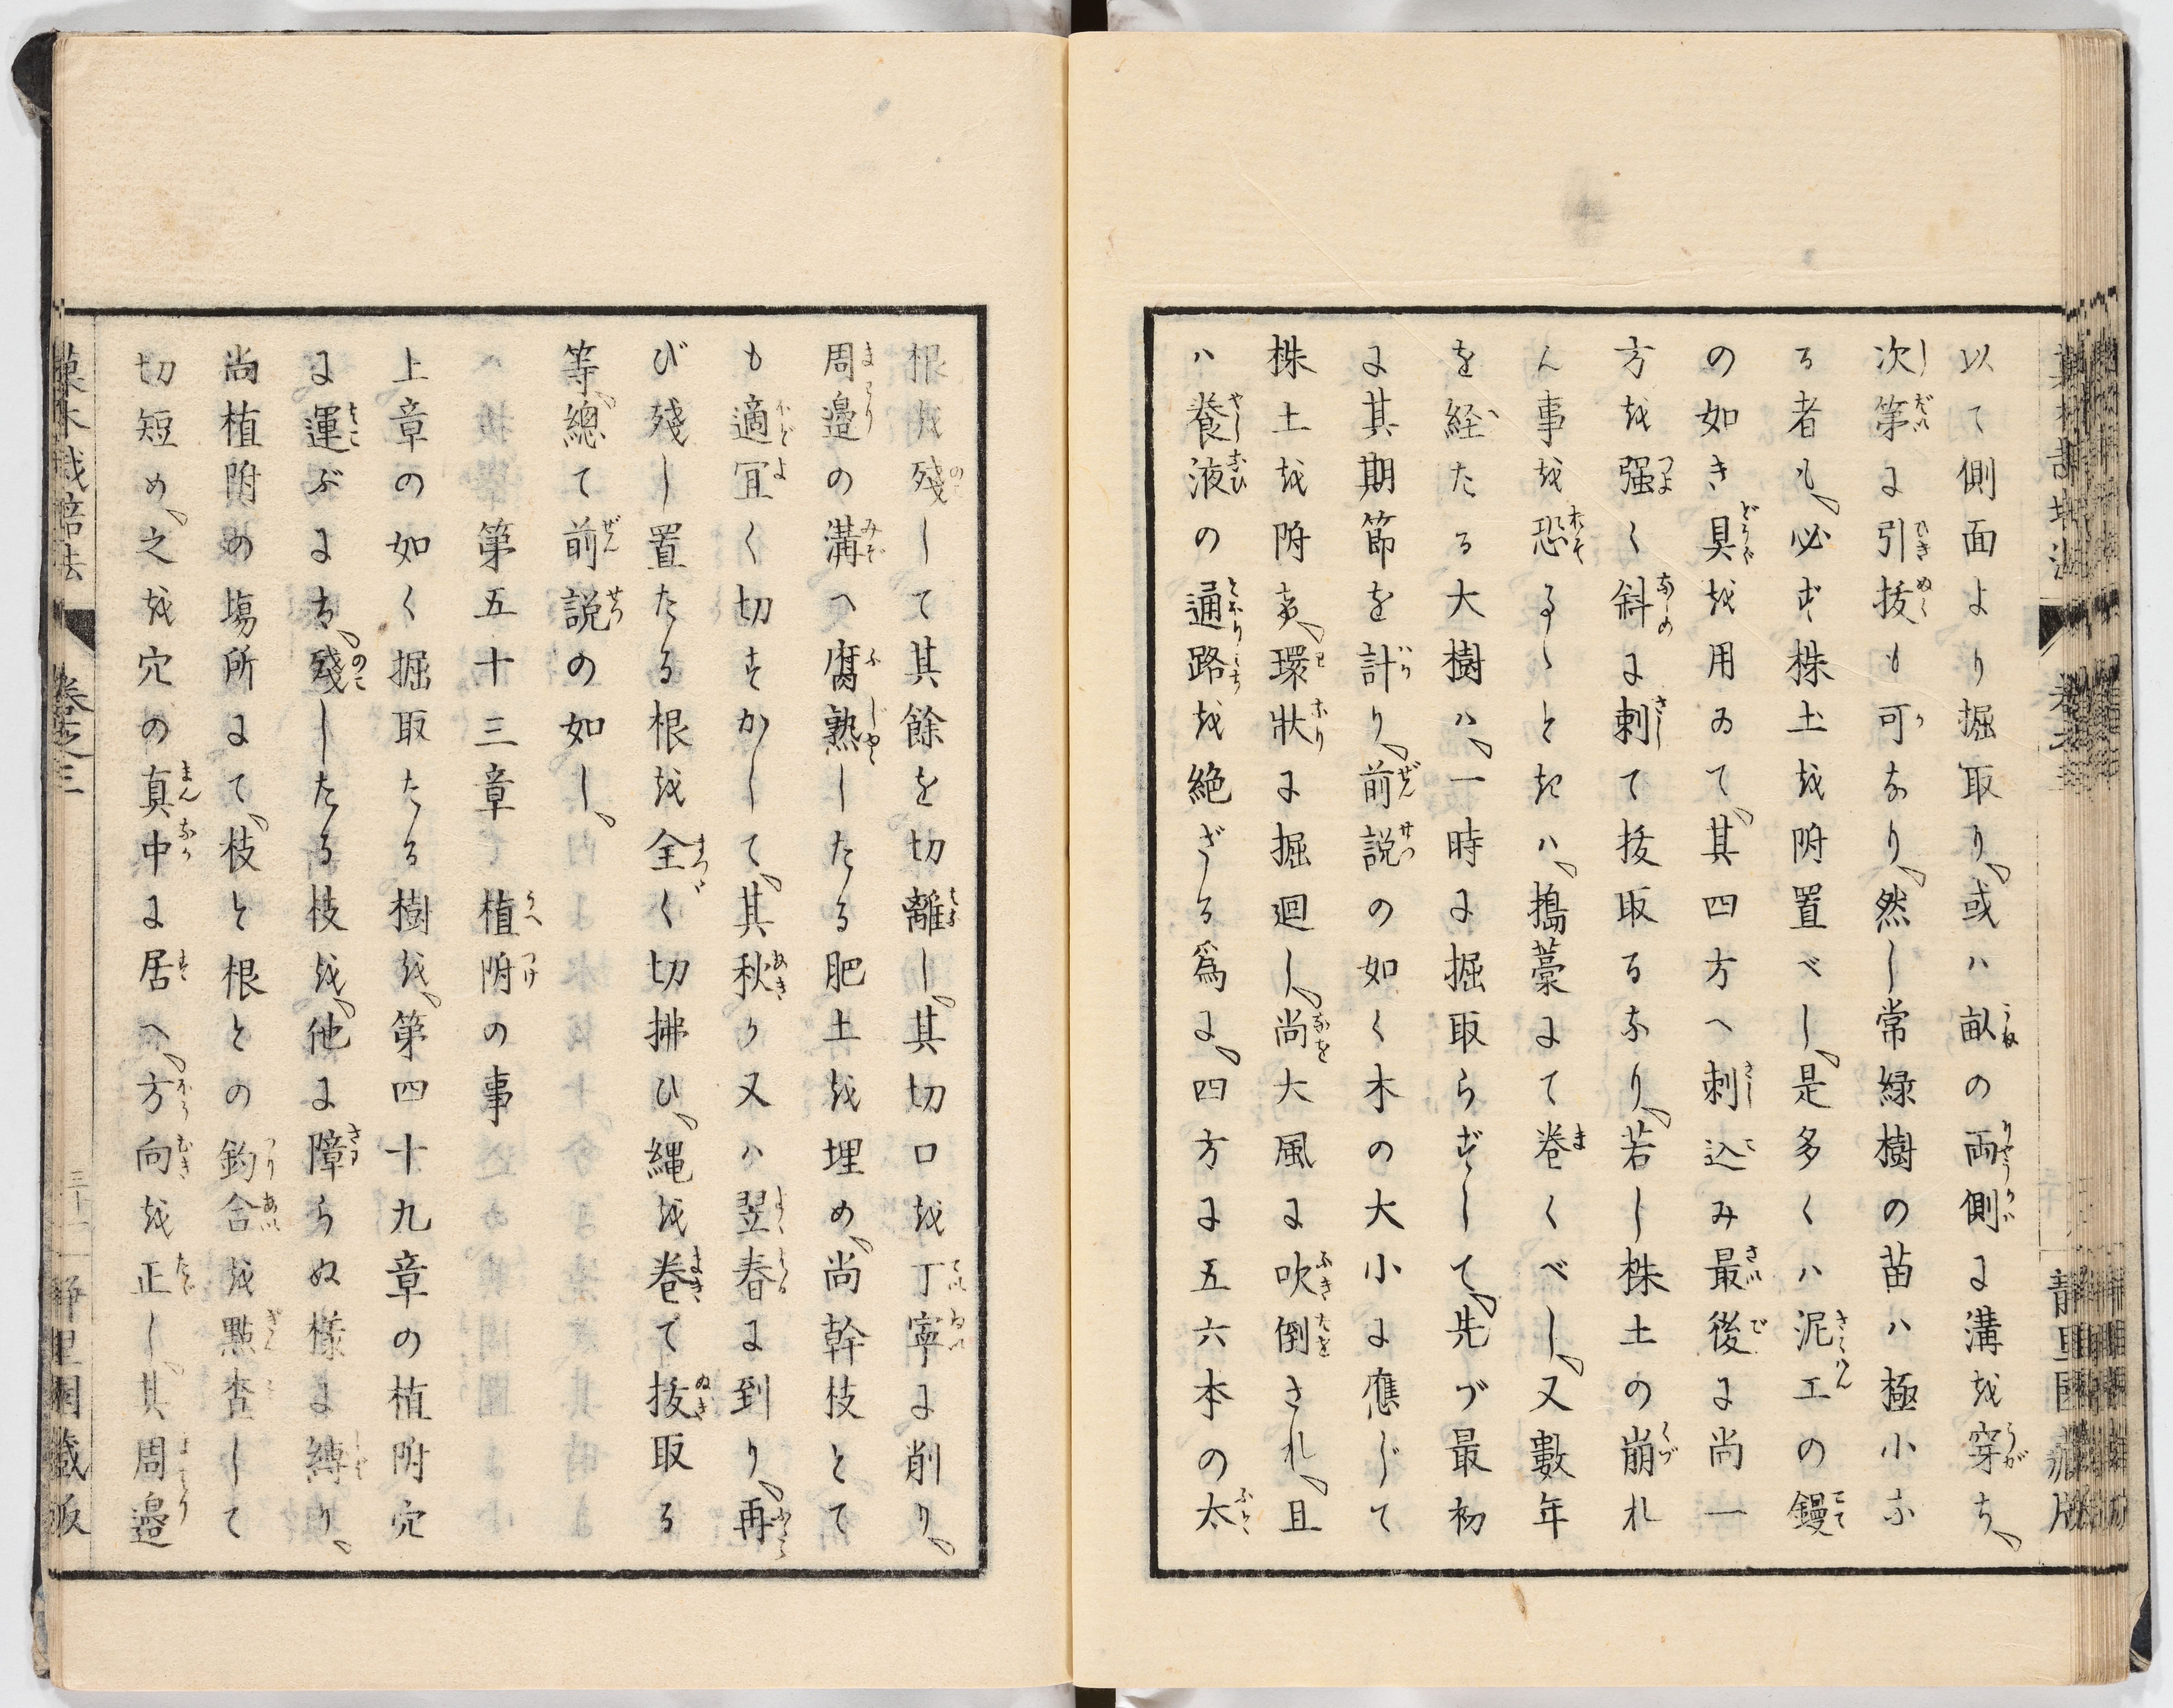 以て側面より掘取り、或ハ畝の両側に溝を穿ち、
次第に引抜も可なり、然し常緑樹の苗ハ極小な
る者も、必ず株土を附置べし、是多くハ泥工の鏝
の如き具を用ゐて、其四方へ刺込み最後に尚一
方を强く斜に刺て抜取るなり、若し株土の崩れ
ん事を恐るゝときハ、搗藁にて巻くべし、又數年
を経たる大樹ハ、一時に掘取らずして、先づ最初
に其期節を計り、前説の如く木の大小に應じて
株土を附着、環狀に掘廻し、尚大風に吹倒され、且
ハ養液の通路を絶ざる爲に、四方に五六本の太
根を殘して其餘を切離し、其切口を丁寧に削り、
周邉の溝へ腐熟したる肥土を埋め、尚幹枝とて
も適宜く切すかして、其秋り又ハ翌春に到り、再
び殘し置たる根を全く切拂ひ、縄を巻て抜取る
等、總て前説の如し、
第五十三章 植附の事
上章の如く掘取たる樹を、第四十九章の植附穴
に運ぶにち、殘したる枝を、他に障らぬ樣に縛り、
尚植附の塲所にて、枝と根との釣合を點査して
切短め、之を穴の真中に居へ、方向を正し、其周邉
菓木栽培法 巻之三 三十一 静里園藏版